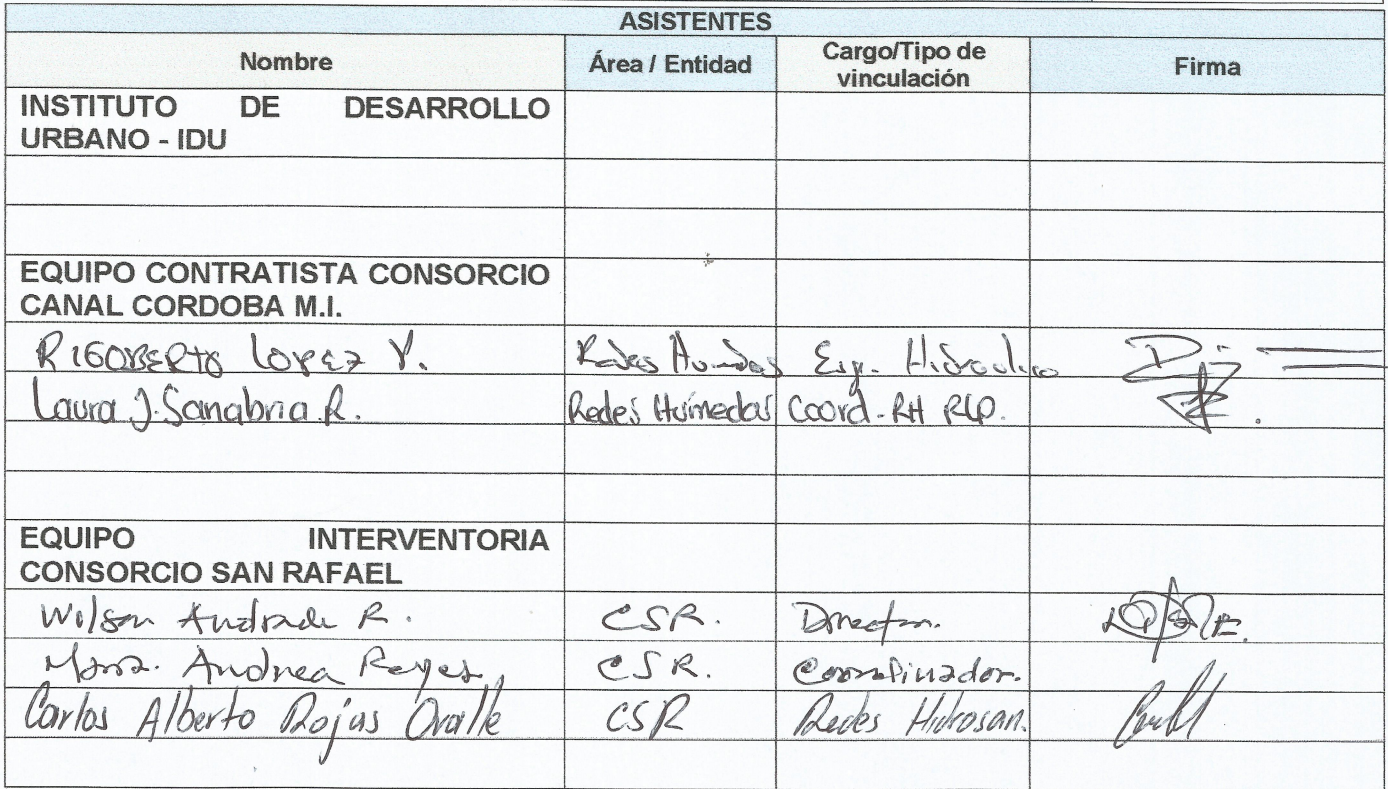 ASISTENTES
Nombre Área / Entidad Cargo/Tipo de vinculación Firma
INSTITUTO DE DESARROLLO
URBANO - IDU
EQUIPO CONTRATISTA CONSORCIO
CANAL CORDOBA M.I.
RIGOBERTO LOPEZ V. Redes Humedas Esp. Hidraulico
Laura J. Sanabria R. Redes Húmedas Coord. RH
EQUIPO INTERVENTORIA
CONSORCIO SAN RAFAEL
Wilson Andrade R. CSR. Director.
Andrea Reyes CSR. Coordinador.
Carlos Alberto Rojas Ovalle CSR Redes Hidrosan.